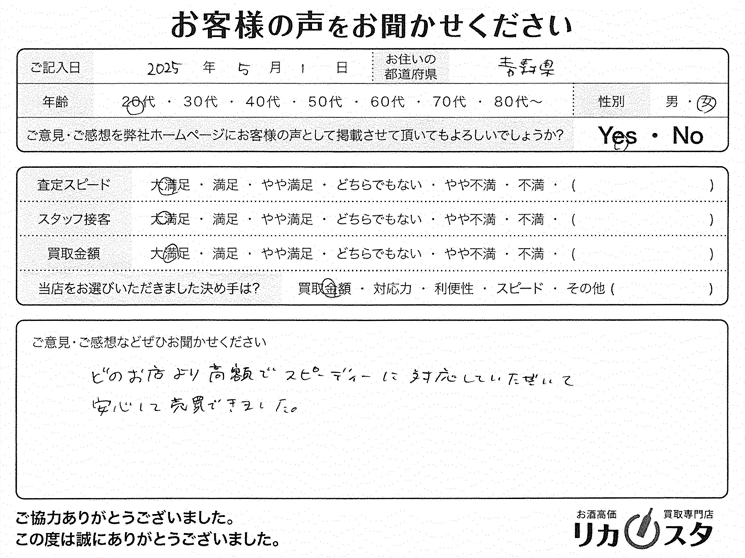 お客様の声をお聞かせください
ご記入日 2025 年 5 月 1 日 お住いの都道府県 青森県
年齢 20代 ・ 30代 ・ 40代 ・ 50代 ・ 60代 ・ 70代 ・ 80代〜 性別 男 ・ 女
ご意見・ご感想を弊社ホームページにお客様の声として掲載させて頂いてもよろしいでしょうか? Yes ・ No
査定スピード 大満足 ・ 満足 ・ やや満足 ・ どちらでもない ・ やや不満 ・ 不満 ・ ( )
スタッフ接客 大満足 ・ 満足 ・ やや満足 ・ どちらでもない ・ やや不満 ・ 不満 ・ ( )
買取金額 大満足 ・ 満足 ・ やや満足 ・ どちらでもない ・ やや不満 ・ 不満 ・ ( )
当店をお選びいただきました決め手は? 買取金額 ・ 対応力 ・ 利便性 ・ スピード ・ その他 ( )
ご意見・ご感想などぜひお聞かせください
どのお店より高額でスピーディーに対応していただいて
安心して売買できました。
ご協力ありがとうございました。
この度は誠にありがとうございました。
お酒高価 買取専門店
リカスタ